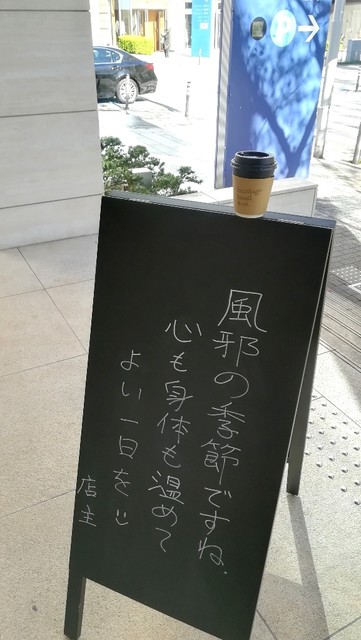 風邪の季節ですね.
心も身体も温めて
よい一日を
店主
P